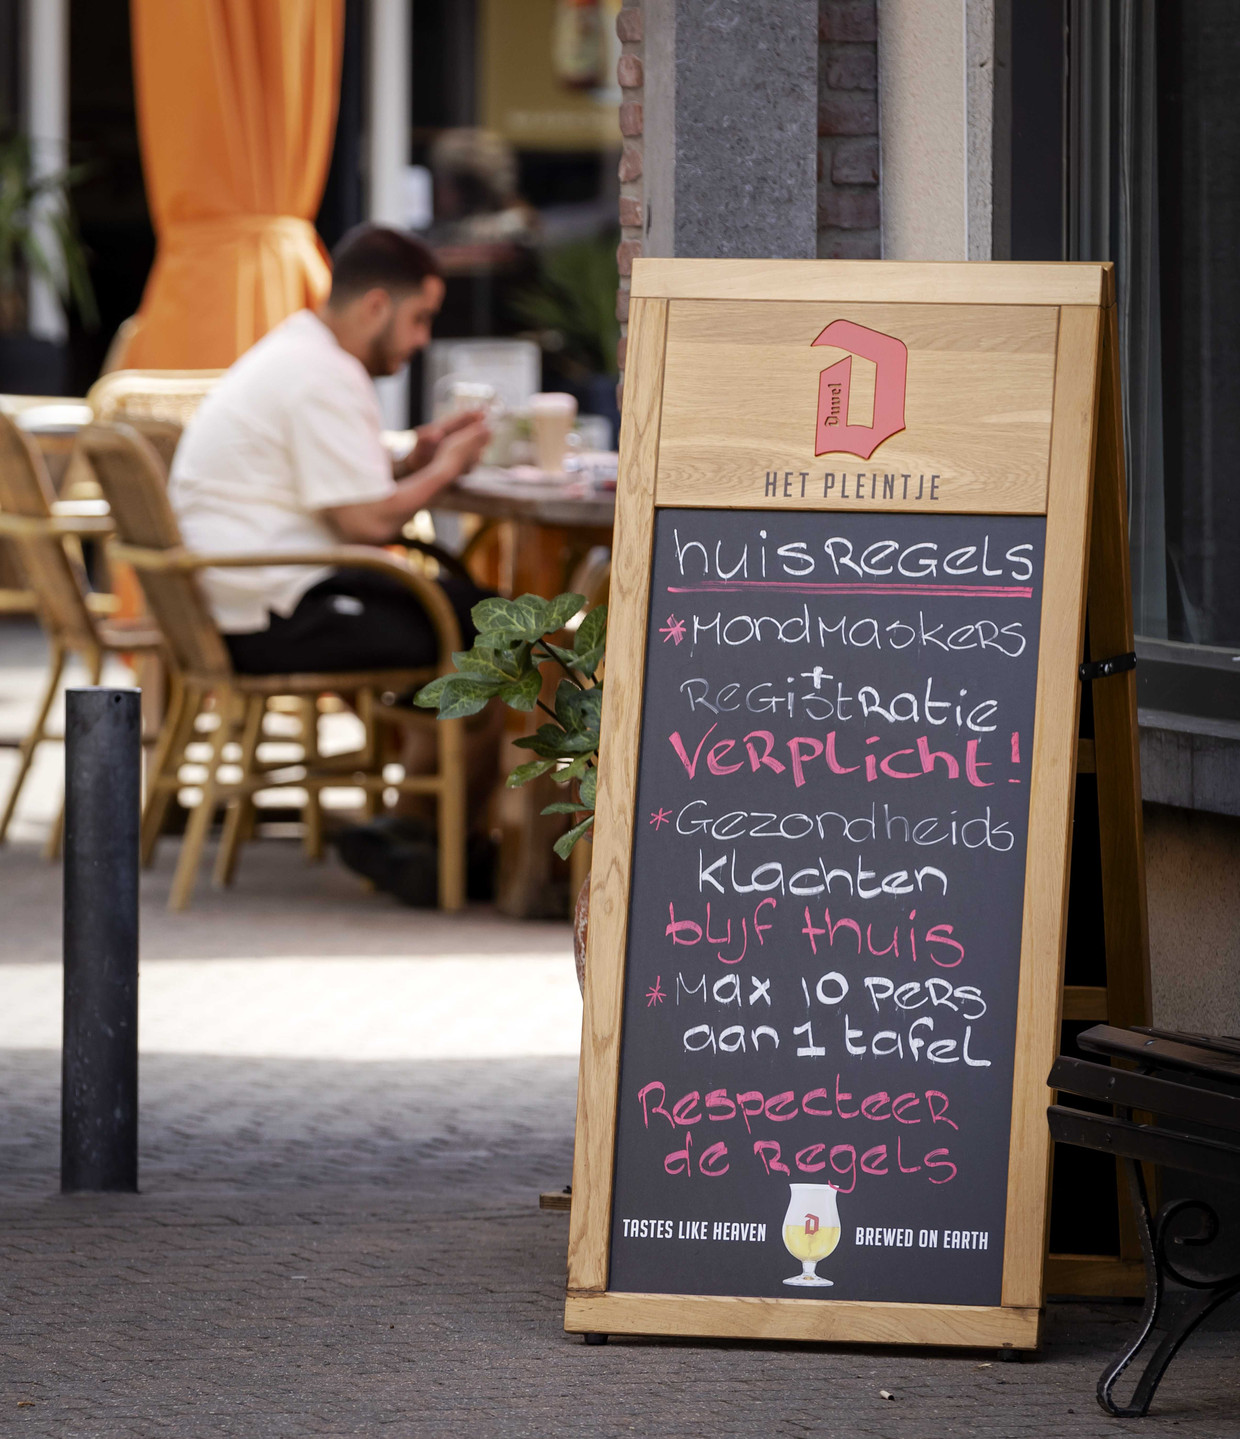 Duvel
HET PLEINTJE
huisREGELS
*MondMaskeRs
+
REGiStRatie
VeRPlicht!
*Gezondheids
Klachten
blijf thuis
*Max 10 PeRS
aan 1 tafel
Respecteer
de Regels
TASTES LIKE HEAVEN BREWED ON EARTH